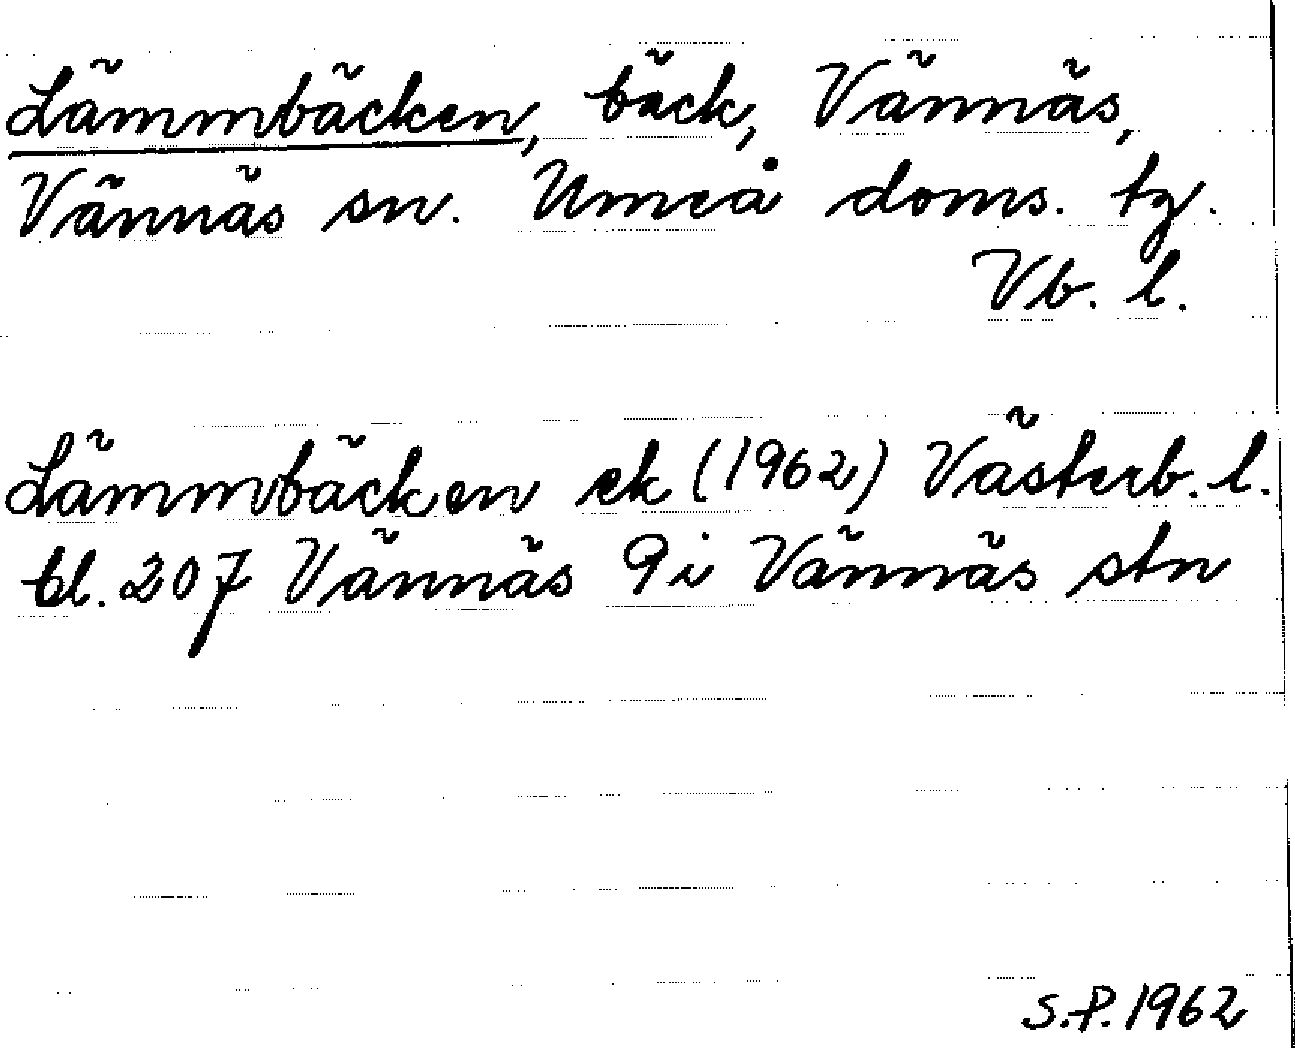 Lämmbäcken, bäck, Vännäs,
Vännäs sn. Umeå doms. tg.
Vb. l.
Lämmbäcken ek (1962) Västerb. l.
bl. 207 Vännäs 9i Vännäs stn
S.P. 1962